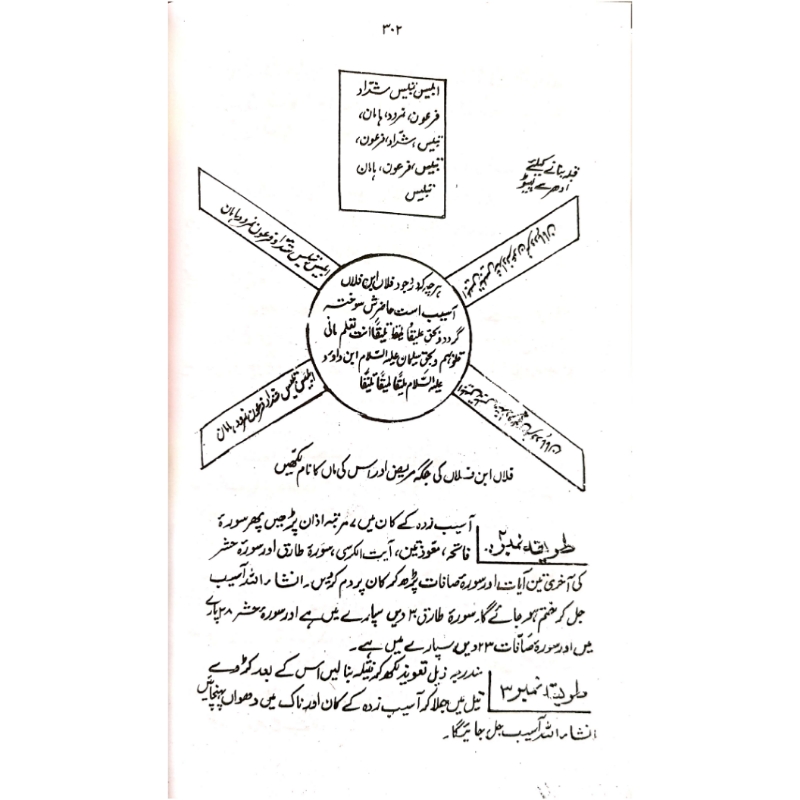 ۳۰۲
ابلیس تبلیس شدّاد
فرعون، نمرود، ہامان،
تبلیس، شدّاد، فرعون،
تبلیس، فرعون، ہامان
تبلیس
ابلیس تبلیس شداد فرعون نمرود ہامان
ہرچہ کہ در وجود فلاں ابن فلاں
آسیب است حاضرش سوختہ
گردد وبحق علیقًا
وبحق سلیمان علیہ السّلام ابن داؤد
علیہ السّلام
ابلیس تبلیس شداد فرعون نمرود ہامان
فلاں ابن فلاں کی جگہ مریض اور اس کی ماں کا نام لکھیں
طریقہ نمبر ۲۔
آسیب زدہ کے کان میں ۷ مرتبہ اذان پڑھیں پھر سورۂ
فاتحہ، معوذتین، آیت الکرسی، سورۂ طارق اور سورۂ حشر
کی آخری تین آیات اور سورۂ صافات پڑھ کر کان پر دم کر دیں۔ انشاء اللہ آسیب
جل کر ختم ہو جائے گا۔ سورۂ طارق ۳۰ ویں سپارے میں ہے اور سورۂ حشر ۲۸ پارے
میں اور سورۂ صافات ۲۳ ویں سپارے میں ہے۔
طریقہ نمبر ۳
مندرجہ ذیل تعویذ لکھ کر فتیلہ بنا لیں اس کے بعد کڑوے
تیل میں جلا کر آسیب زدہ کے کان اور ناک میں دھواں پہنچائیں
انشاء اللہ آسیب جل جائیگا۔